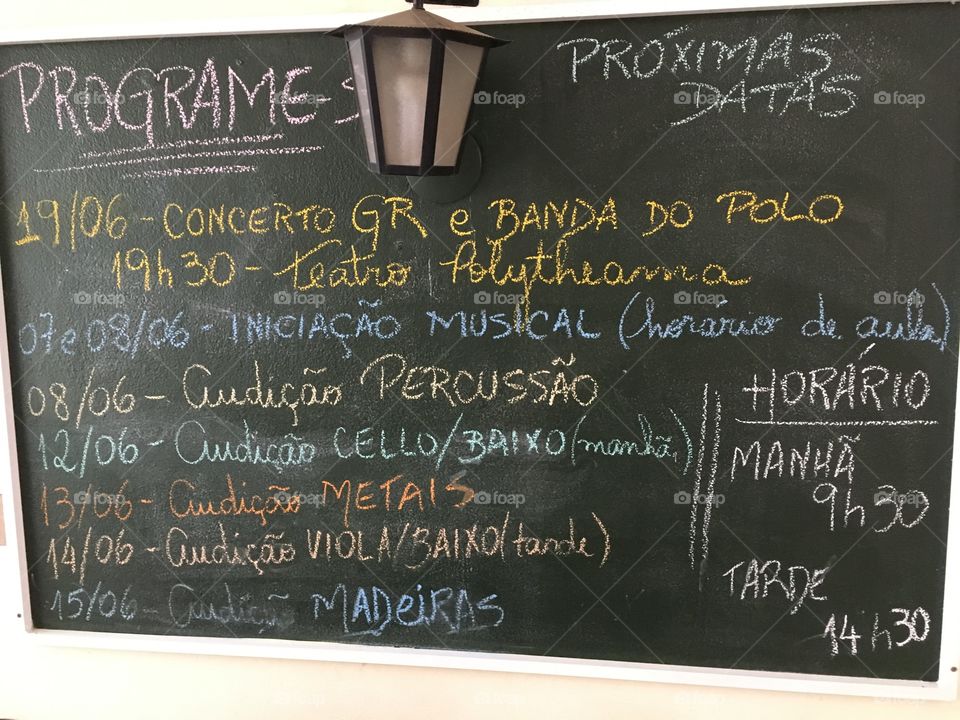 PROGRAME-S
PRÓXIMAS
DATAS
19/06 - CONCERTO GR e BANDA DO POLO
19h30 - Teatro Polytheamma
07 e 08/06 - INICIAÇÃO MUSICAL (horário de aula)
08/06 - Audição PERCUSSÃO
12/06 - Audição CELLO/BAIXO (manhã)
13/06 - Audição METAIS
14/06 - Audição VIOLA/BAIXO (tarde)
15/06 - Audição MADeiRAS
HORÁRIO
MANHÃ
9h30
TARDE
14h30